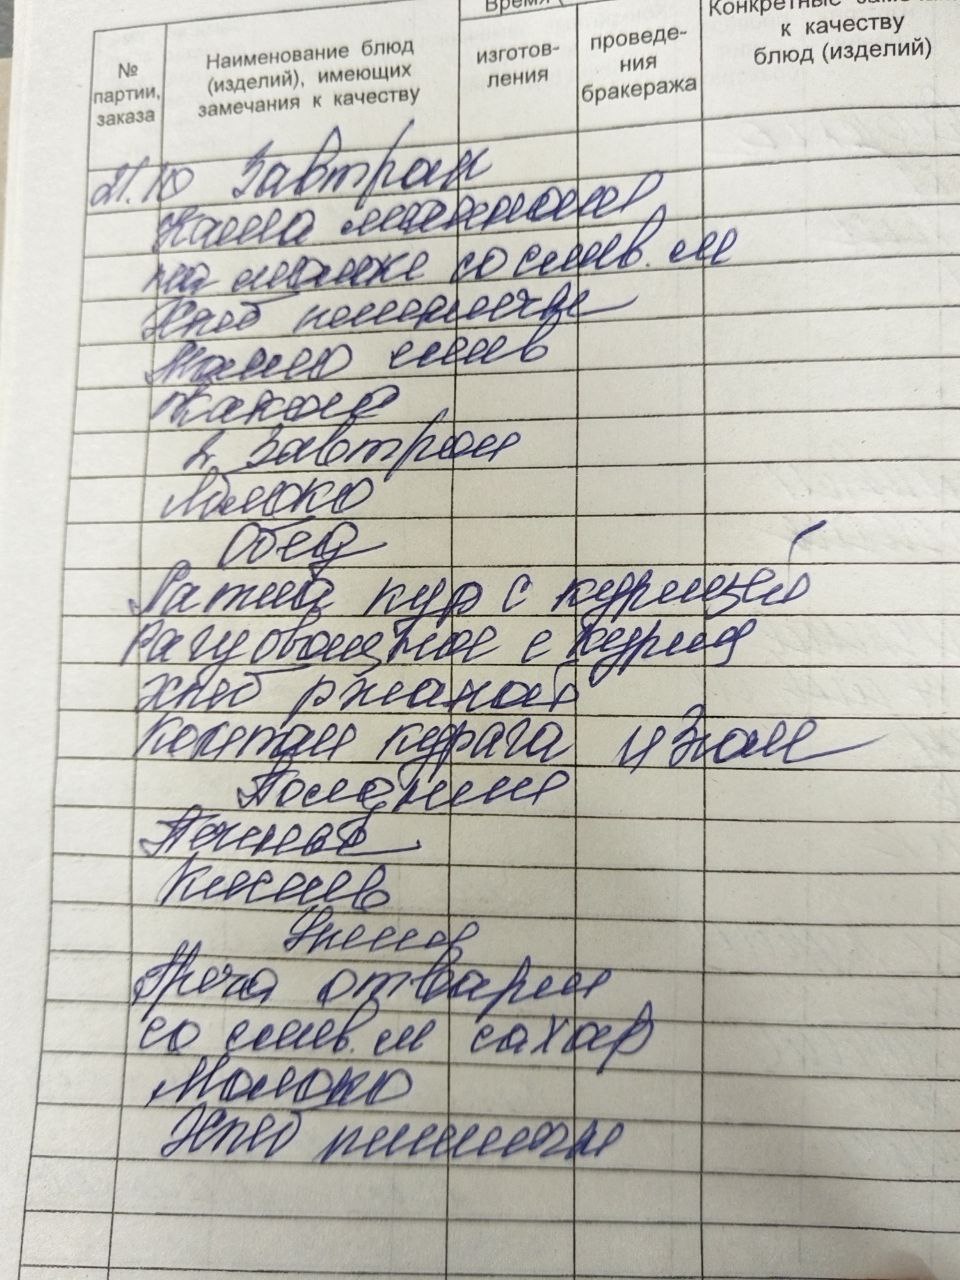 Время (
Конкретные замеча
к качеству
блюд (изделий)
№
партии,
заказа
Наименование блюд
(изделий), имеющих
замечания к качеству
изготов-
ления
проведе-
ния
бракеража
21.10 Завтрак
Каша
на молоке со слив. м
Хлеб пшеничн
Масло слив
Какао
2 Завтрак
Яблоко
Обед
кур с курицей
Рагу овощное с куриц
Хлеб ржаной
Компот курага изюм
Полдник
Печенье
Кисель
Ужин
Греча отварн
со слив. м сахар
Молоко
Хлеб пшеничн